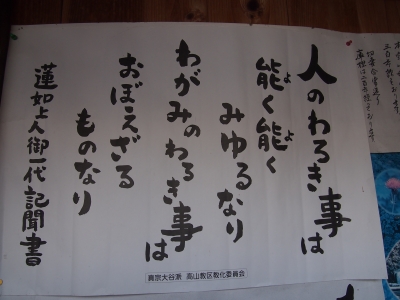 人のわろき事は
能く能く
よ
よ
みゆるなり
わがみのわろき事は
おぼえざる
ものなり
蓮如上人御一代記聞書
真宗大谷派 高山教区教化委員会